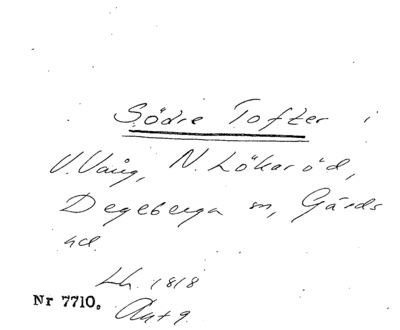 Södre Tofter i
V. Vång, N. Lökaröd,
Degeberga sn, Gärds
hd.
Lh. 1818
Nr 7710. Akt 9.